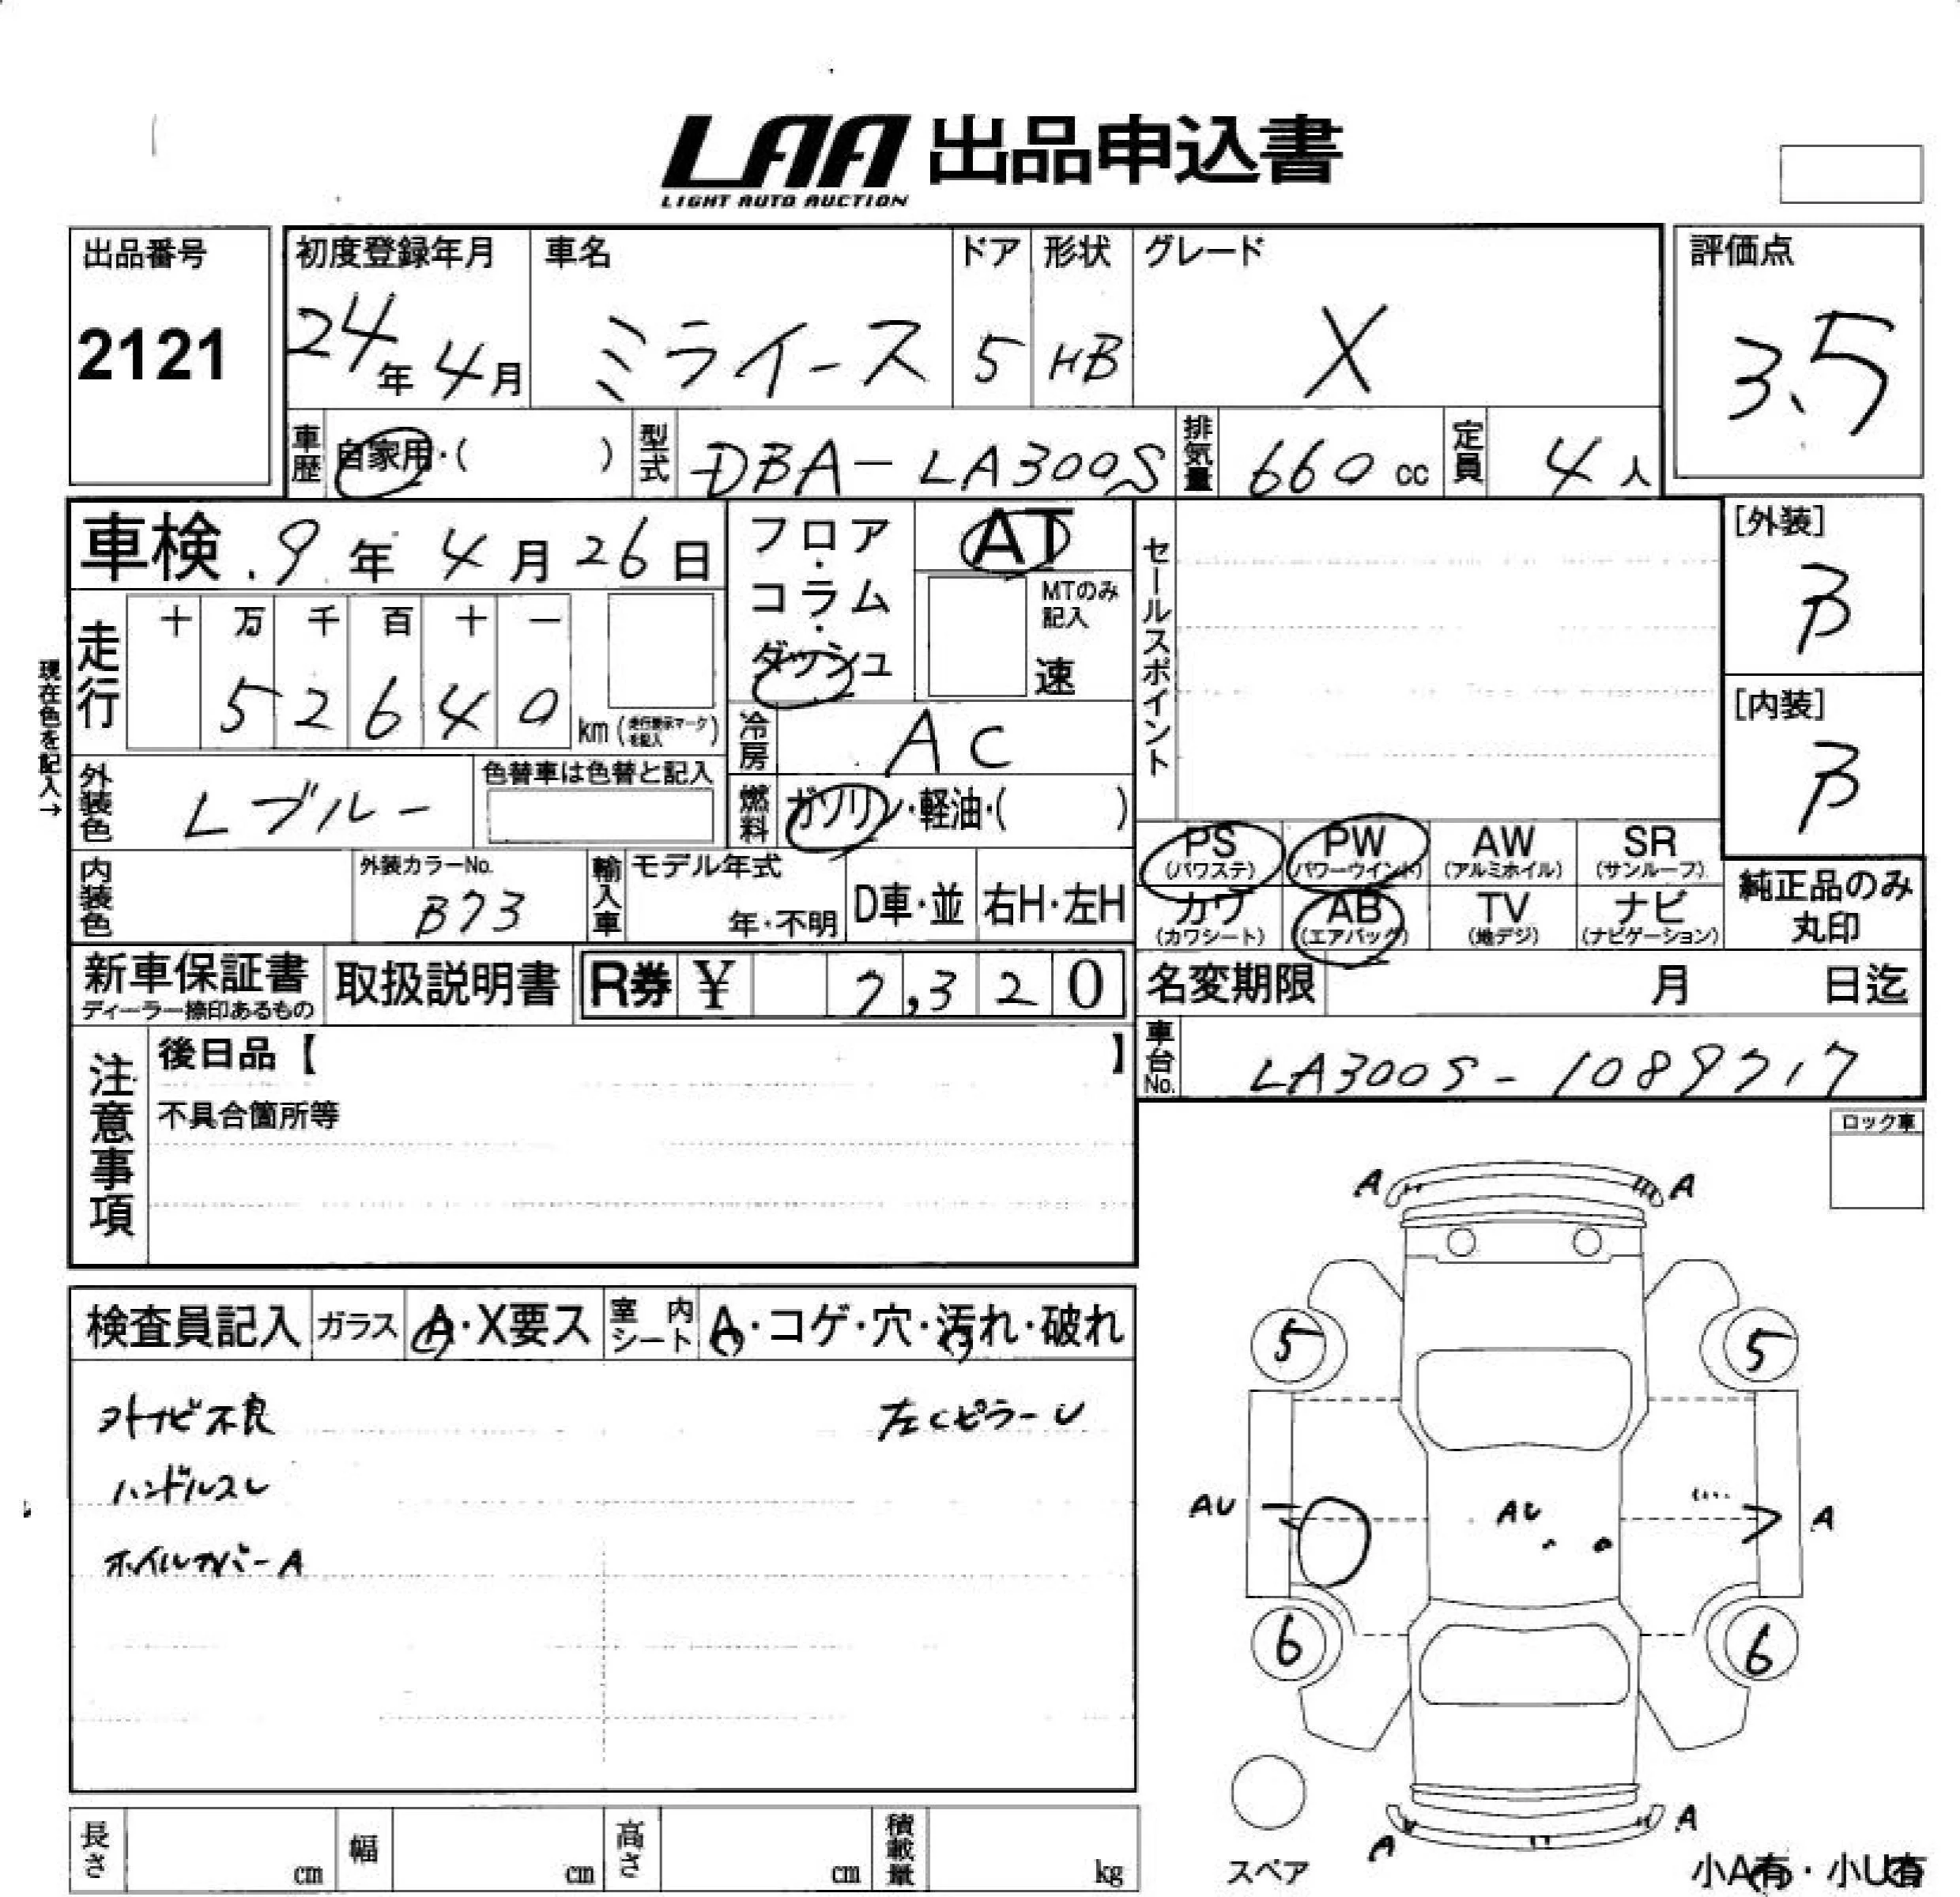 LAA 出品申込書
LIGHT AUTO AUCTION
出品番号
2121
初度登録年月
24年 4月
車名
ミライース
ドア
5
形状
HB
グレード
X
評価点
3.5
車歴 自家用・( )
型式 DBA-LA300S
排気量 660 cc
定員 4人
車検 9年 4月 26日
フロア・コラム・ダッシュ
AT
MTのみ記入
速
セールスポイント
[外装]
B
[内装]
B
現在色を記入→
走行
十 万 千 百 十 一
5 2 6 4 0 km (走行表示マークを記入)
冷房 AC
外装色 Lブルー
色替車は色替と記入
燃料 ガソリン・軽油・( )
PS (パワステ)
PW (パワーウインド)
AW (アルミホイル)
SR (サンルーフ)
カワ (カワシート)
AB (エアバッグ)
TV (地デジ)
ナビ (ナビゲーション)
純正品のみ丸印
内装色
外装カラーNo.
B73
輸入車
モデル年式
年・不明
D車・並
右H・左H
新車保証書
ディーラー捺印あるもの
取扱説明書
R券 ¥ 7,320
名変期限 月 日迄
車台No. LA300S-1089717
注意事項
後日品【 】
不具合箇所等
ロック車
検査員記入
ガラス A・X要ス
室内シート A・コゲ・穴・汚れ・破れ
不良
左CピラーU
ハンドルスレ
ホイルカバーA
A A
5 5
AU AU A
6 6
A A
スペア
小A有・小U有
長さ cm
幅 cm
高さ cm
積載量 kg